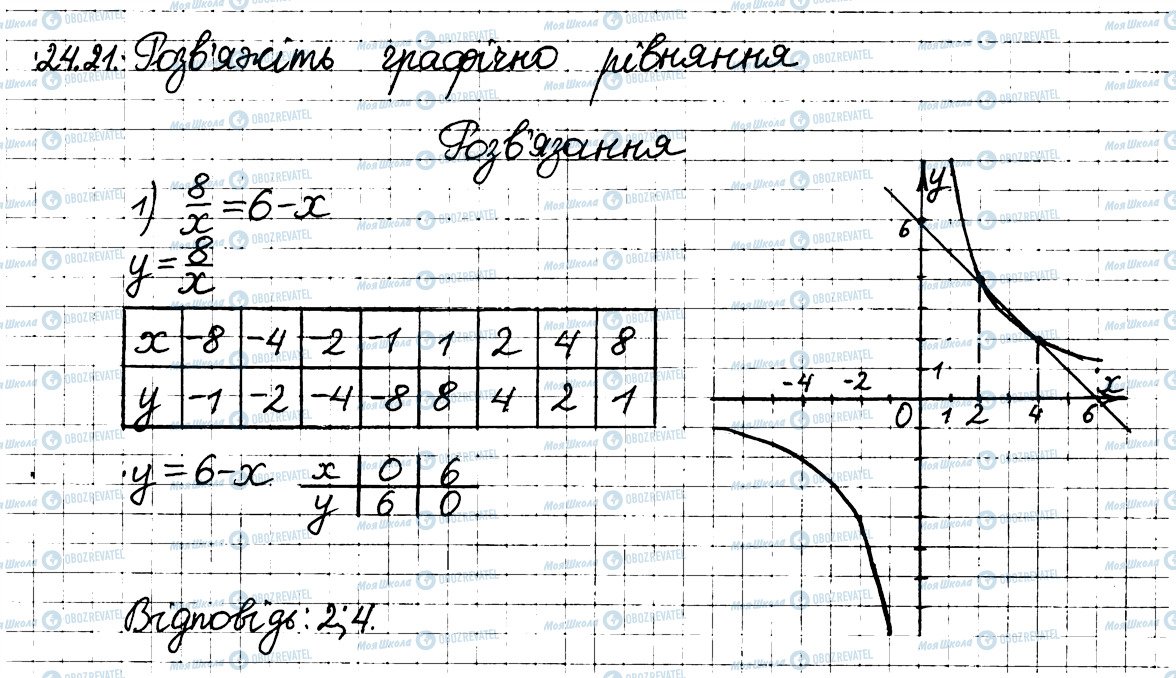 24.21. Розв'яжіть графічно рівняння
Розв'язання
1) 8/x = 6 - x
y = 8/x
x -8 -4 -2 -1 1 2 4 8
y -1 -2 -4 -8 8 4 2 1
y = 6 - x
x 0 6
y 6 0
Відповідь: 2; 4.
y
6
-4 -2 1 x
0 1 2 4 6
МояШкола OBOZREVATEL